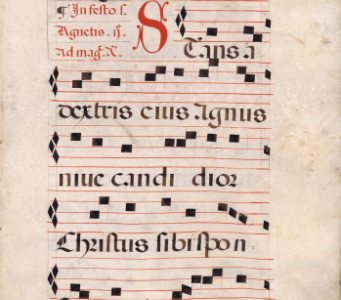 ¶ In festo s.
Agnetis. ij.
Ad mag. A.
STans a
dextris eius Agnus
niue candi dior
Christus sibi spon